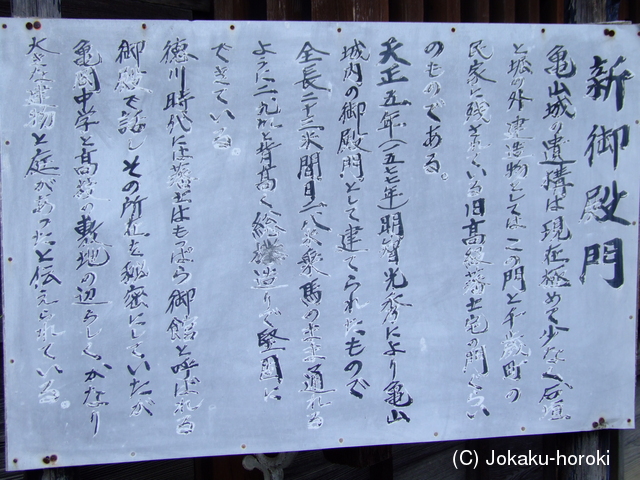 新御殿門
亀山城の遺構は現在極めて少なく石垣
と堀の外建造物としてはこの門と千歳町の
民家に残されている旧高級藩士宅の門くらい
のものである。
天正五年(一五七七年)明智光秀により亀山
城内の御殿門として建てられたもので
全長二十三米間口二・八米乗馬のまま通れる
ように二九が背高く総欅造りで堅固に
できている。
徳川時代には藩主はもっぱら御館と呼ばれる
御殿で話しその所在を秘密にしていたが
亀岡中学と高等の敷地の辺らしく、かなり
大きな建物と庭があったと伝えられている。
(C) Jokaku-horoki